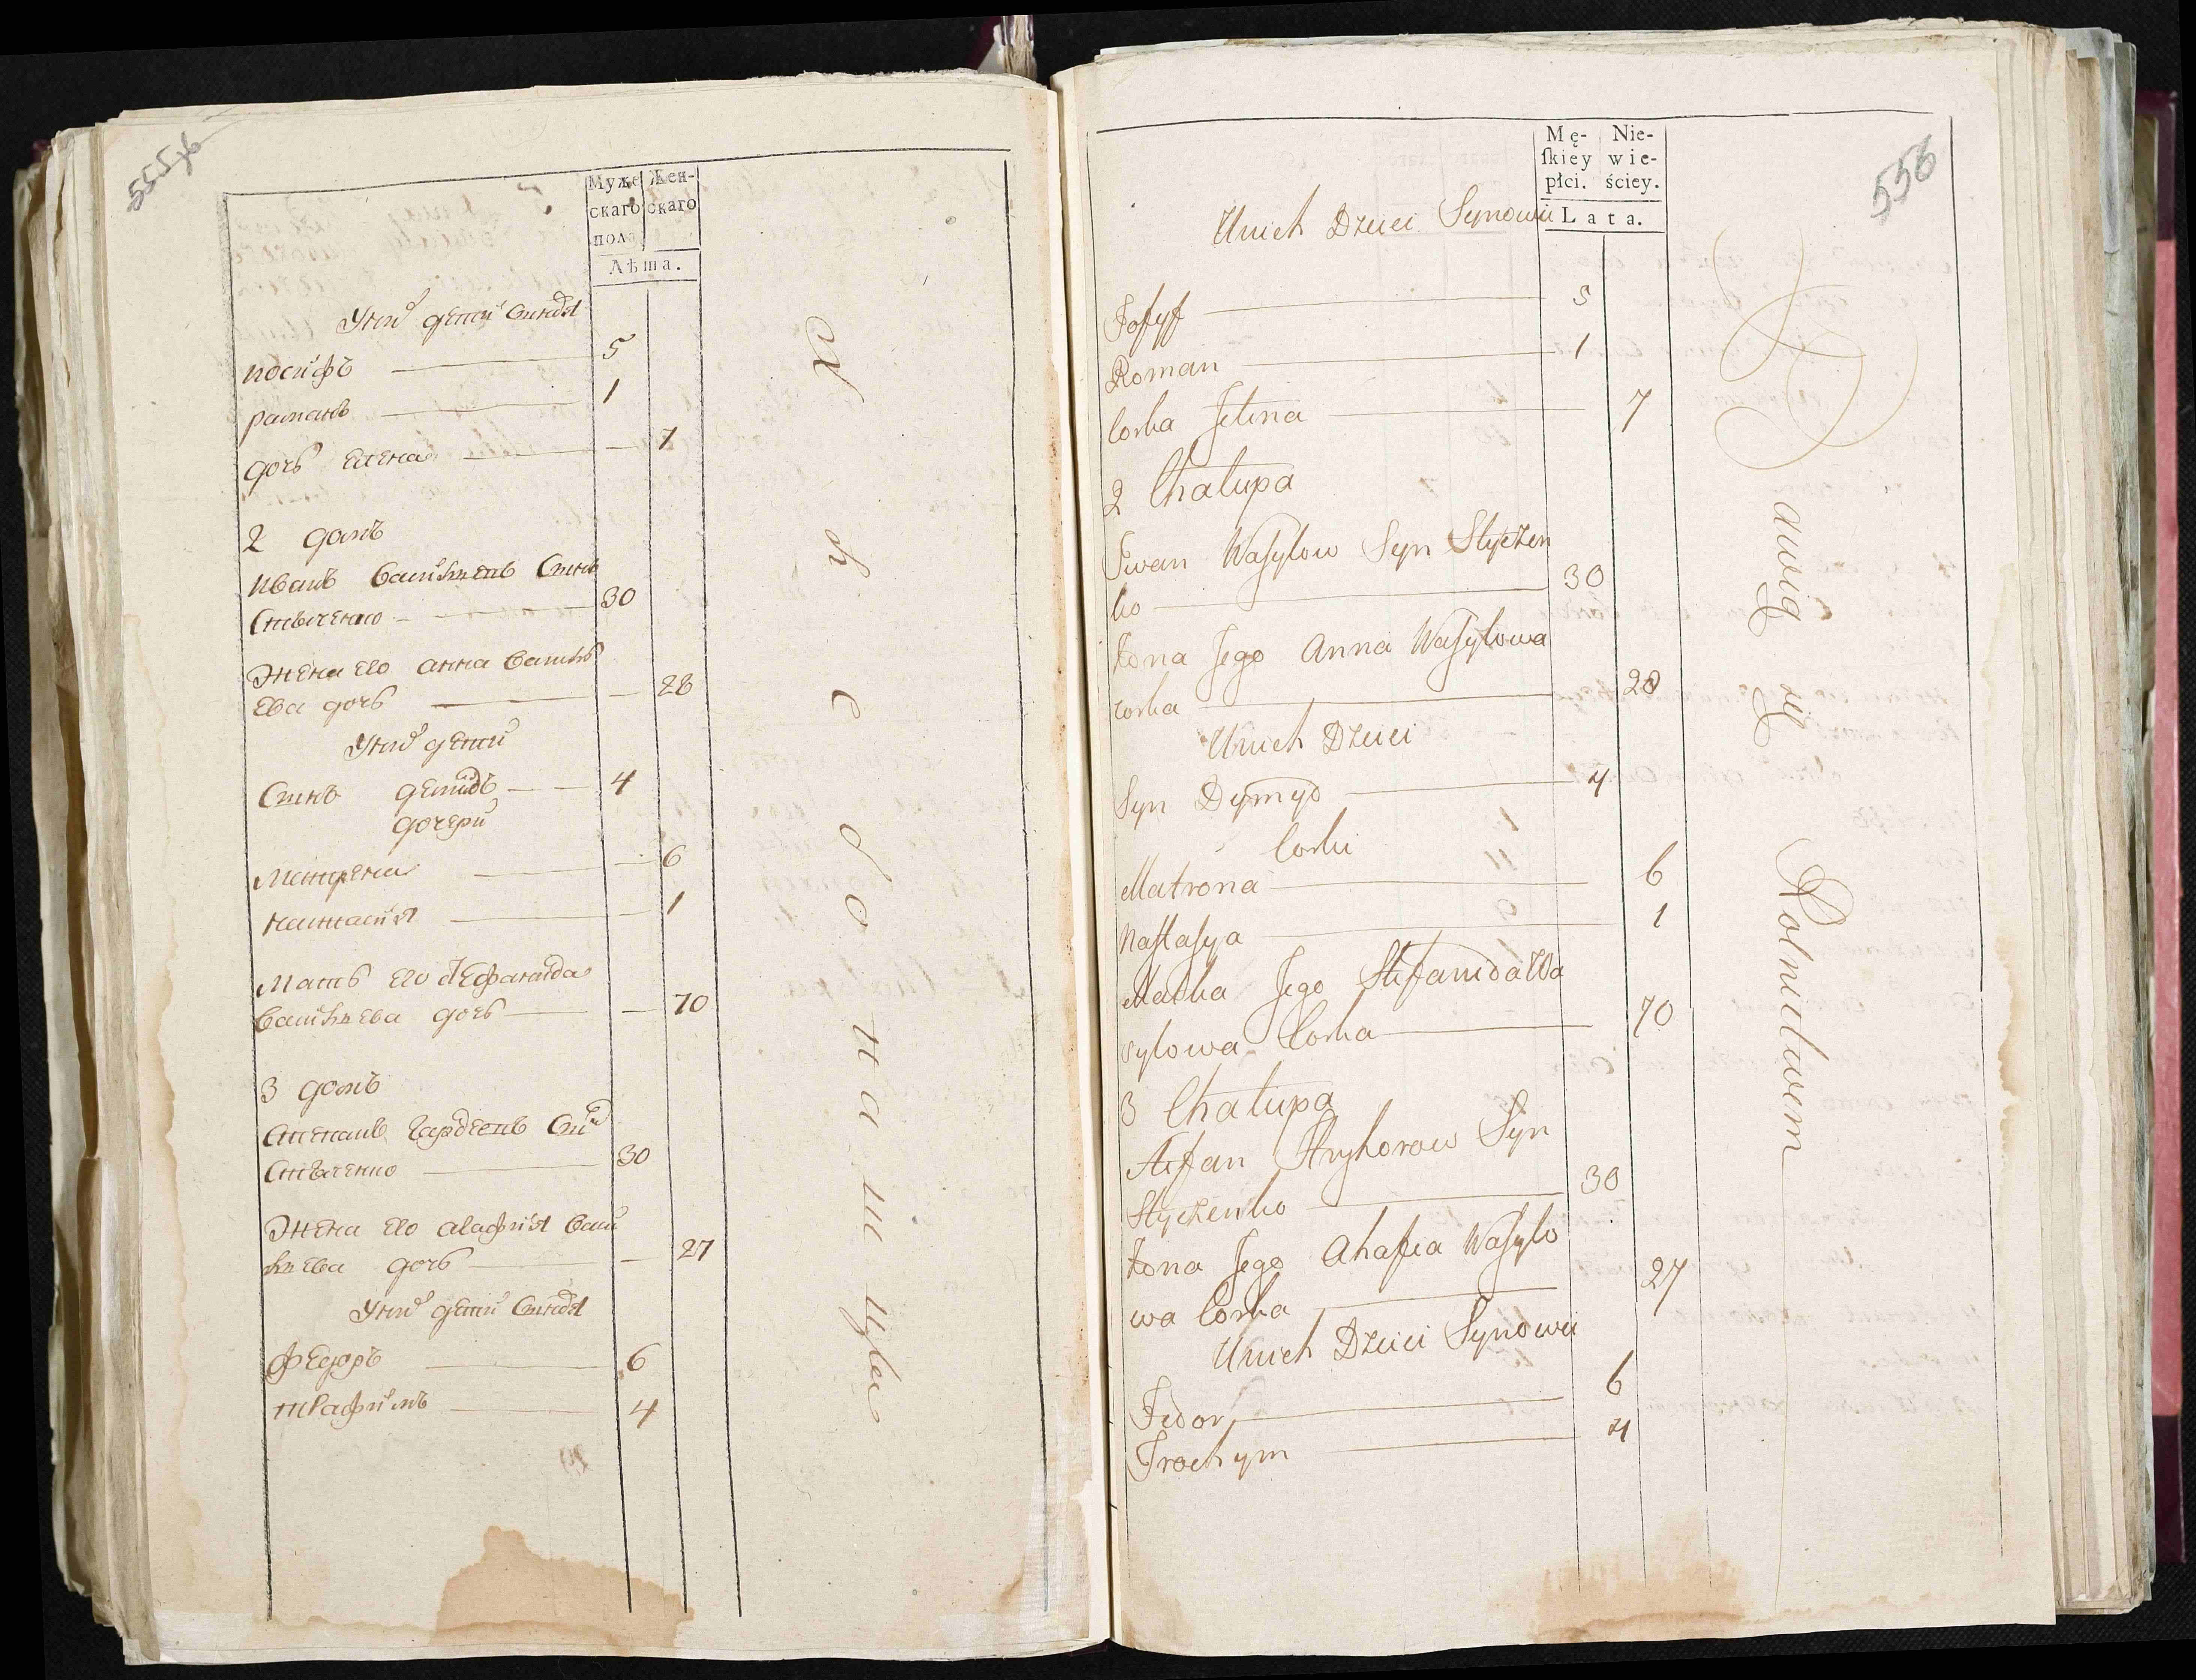 555 об
Муже Жен-
скаго скаго
пола
Лѣта.
У них дети Синовя
Иосифъ 5
Раманъ 1
дочь Елена 7
2 домъ
Иванъ Василъевъ Синъ
Стыченко 30
Жена его анна Василъ
ева дочь 28
У них дети
Синъ демидъ 4
дочери
Матрена 6
настасия 1
Мать его
Василъева дочь 70
3 домъ
Степанъ Син
Стыченко 30
Жена его агафия Васи
льева дочь 27
У них дети Синовя
Федоръ 6
трафимъ 4
556
Mę- Nie-
ſkiey wie-
płci. ściey.
Lata.
Unich Dzieci Synowie
Jozyf 5
Roman 1
Corka Jelena 7
2 Chałupa
Iwan Wasylow Syn Styczen
ko 30
Żona Jego Anna Wasylowa
corka 28
Unich Dzieci
Syn Dymyd 4
Corki
Matrona 6
Nastasya 1
Matka Jego Stefanida Wa
sylowa Corka 70
3 Chałupa
Stefan Hryhorow Syn
Styczenko 30
Żona Jego Ahafia Wasylo
wa Corka 27
Unich Dzieci Synowie
Fedor 6
Trochym 4
Bawią się Rolnictwem